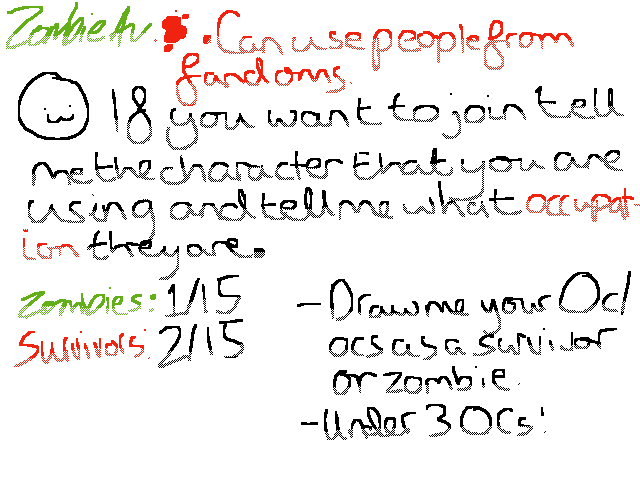 Zombie Au. • Can use people from
fandoms.
If you want to join tell
me the character that you are
using and tell me what occupat
ion they are.
Zombies: 1/15
Survivors: 2/15
- Draw me your Oc/
ocs as a survivor
or zombie.
- Under 3 OCs!